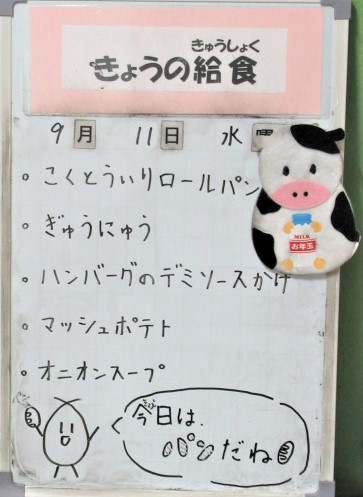 きゅうしょく
きょうの給食
9月 11日 水曜
・こくとういりロールパン
・ぎゅうにゅう
・ハンバーグのデミソースかけ
・マッシュポテト
・オニオンスープ
MILK
お年玉
今日は、
パンだね